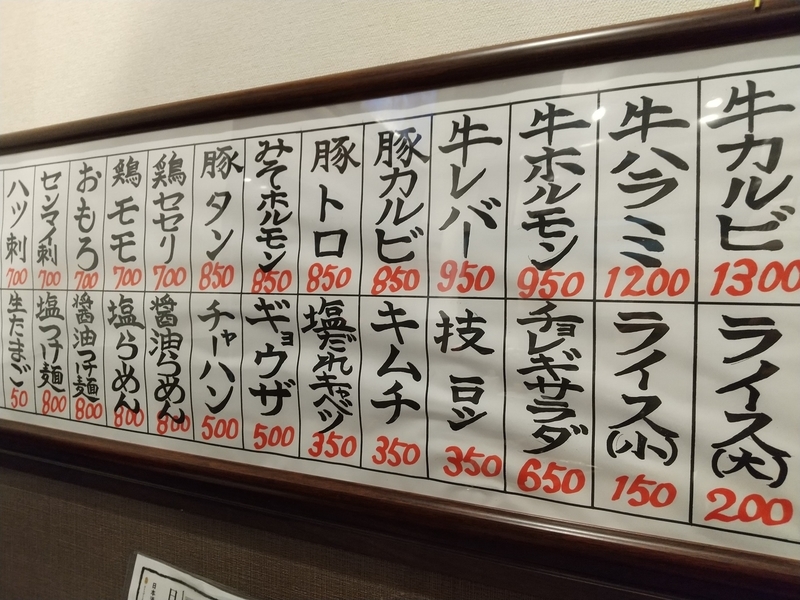 牛カルビ
1300
牛ハラミ
1200
牛ホルモン
950
牛レバー
950
豚カルビ
850
豚トロ
850
みそホルモン
850
豚タン
850
鶏セセリ
700
鶏モモ
700
おもろ
700
センマイ刺
700
ハツ刺
700
ライス(大)
200
ライス(小)
150
チョレギサラダ
650
枝豆
350
キムチ
350
塩だれキャベツ
350
ギョウザ
500
チャーハン
500
醤油らめん
800
塩らめん
800
醤油つけ麺
800
塩つけ麺
800
生たまご
50